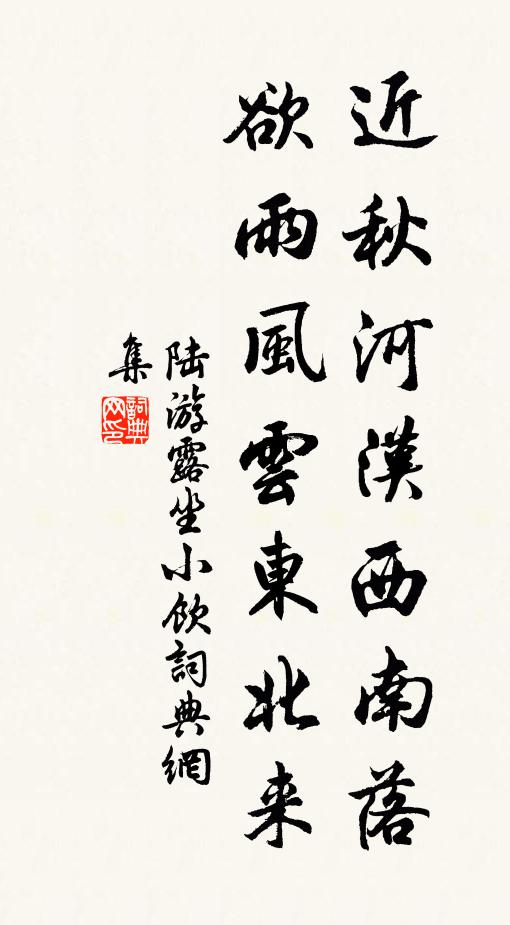 近秋河漢西南落
欲雨風雲東北来
陆游露坐小飲詞典網
集
詞典
网印